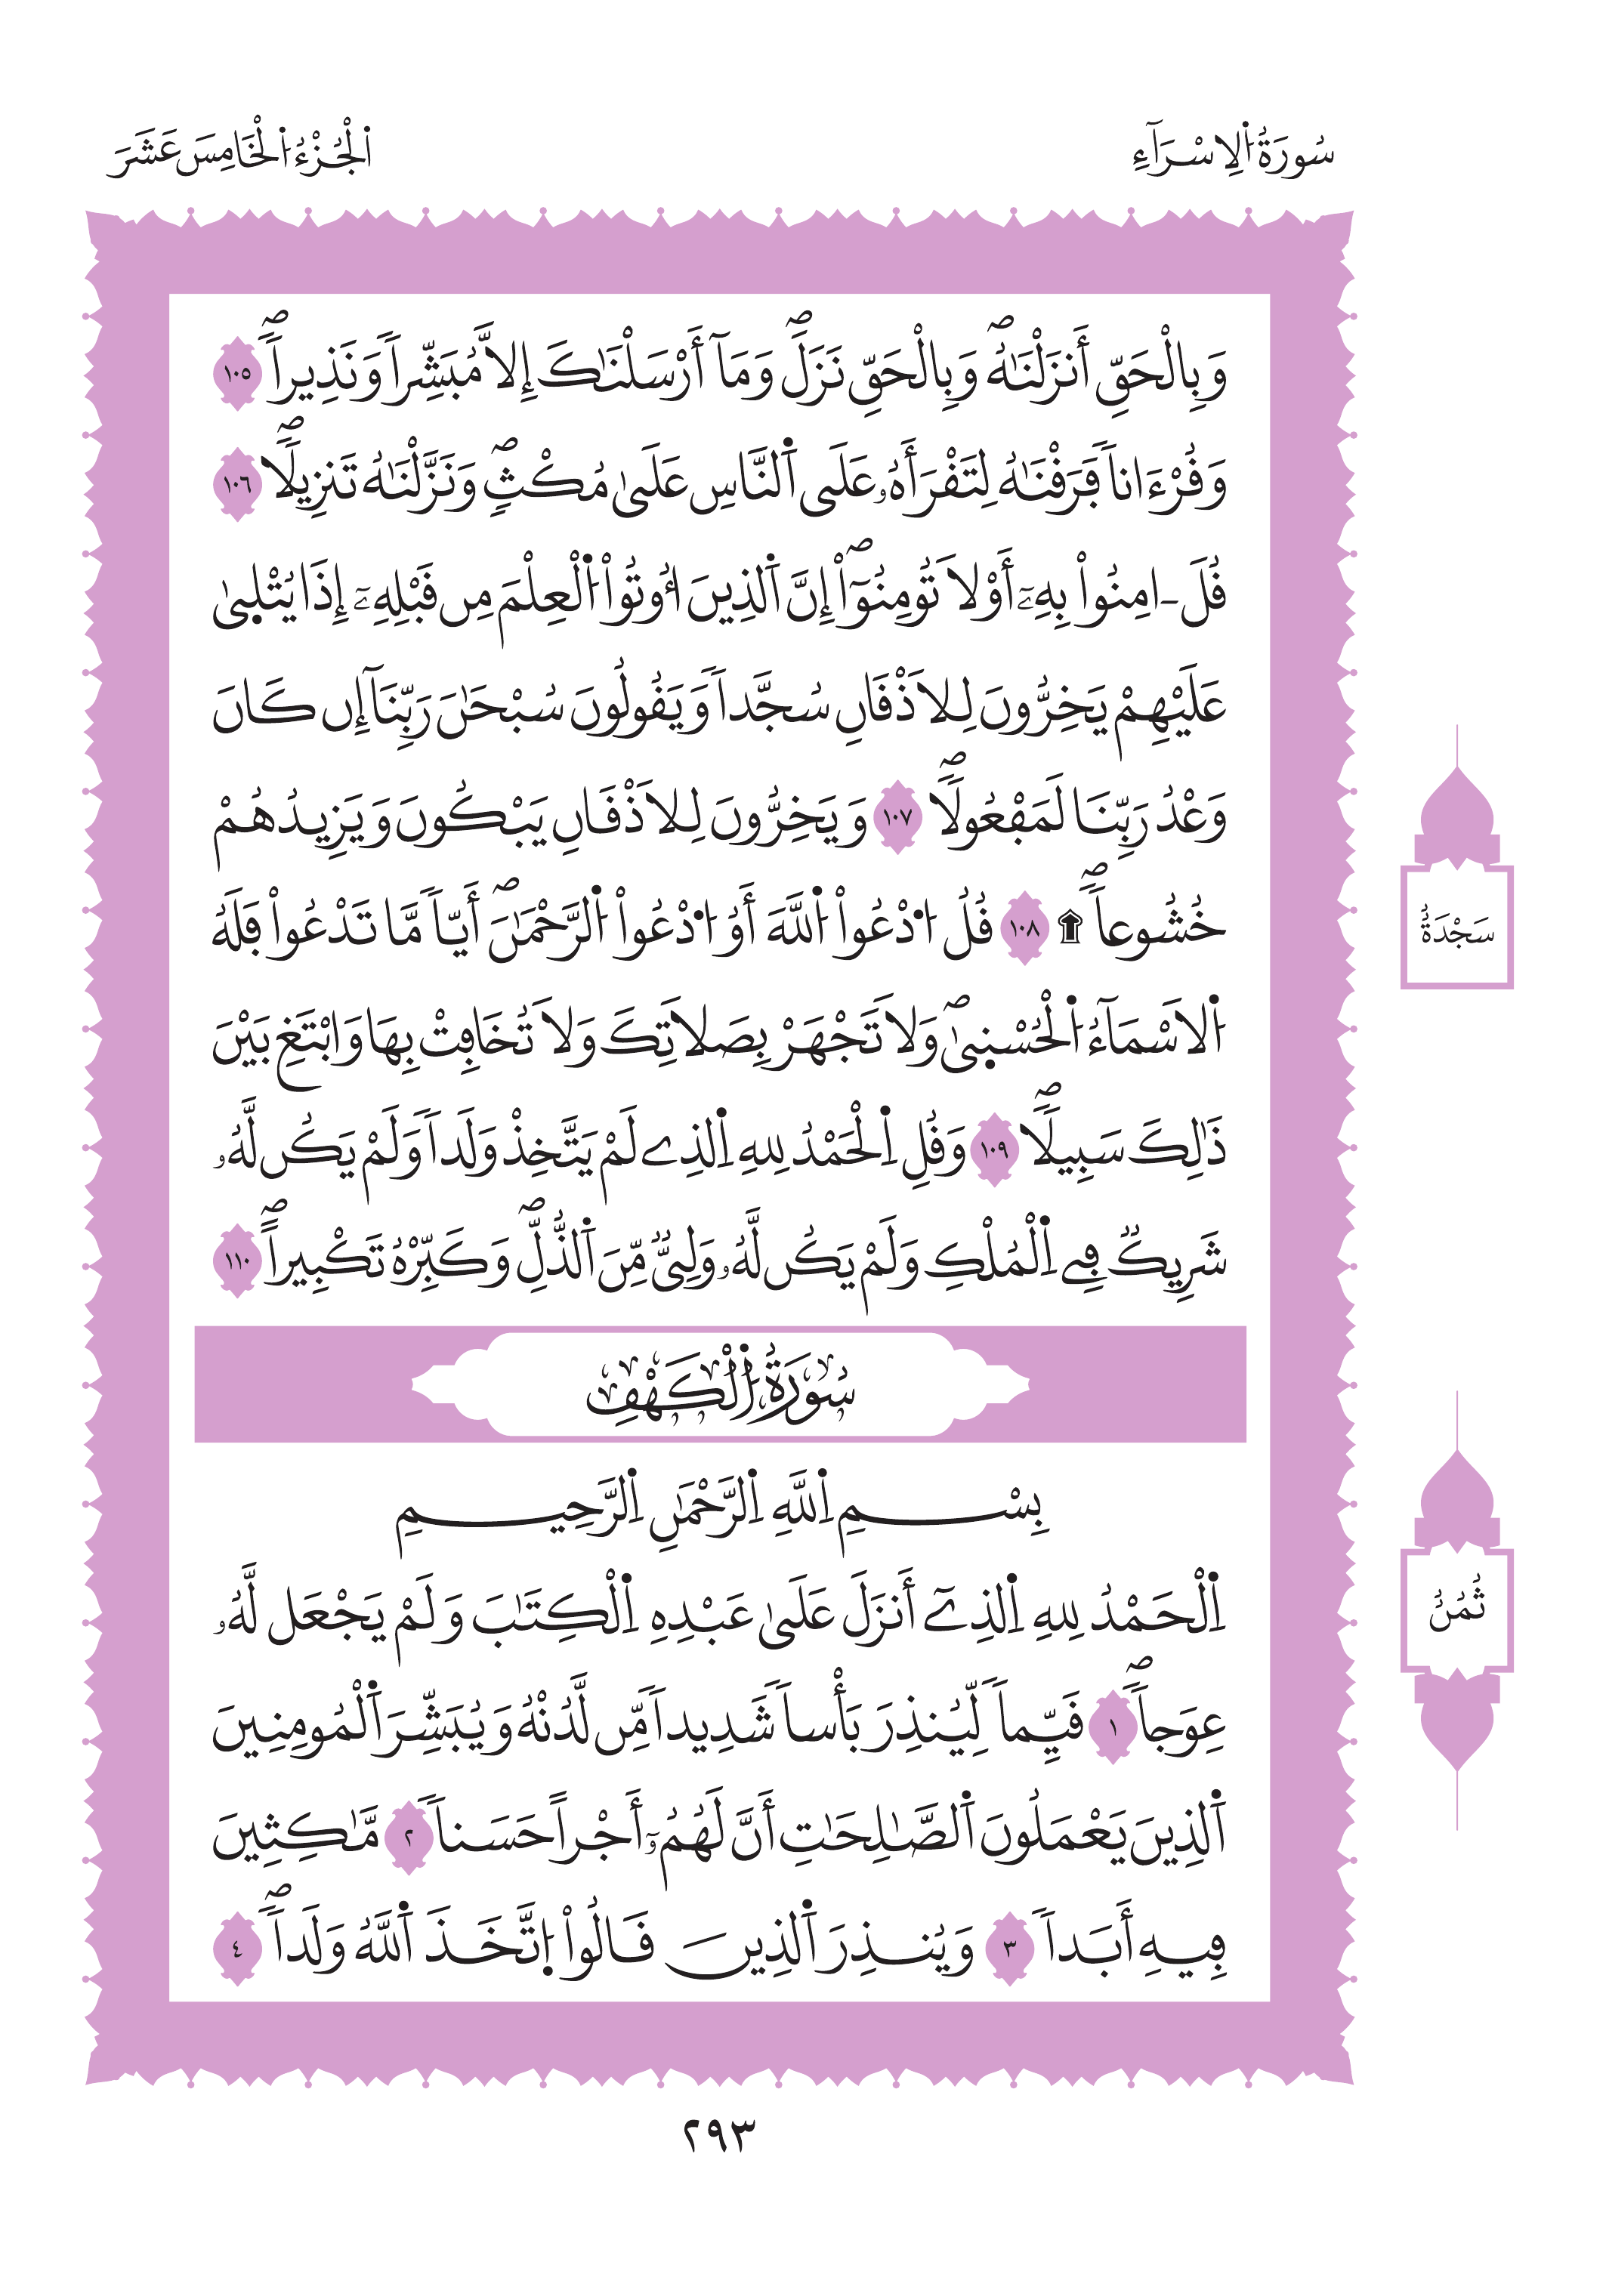 سُورَةُ اُ۬لِاسْرَآءِ
اُ۬لْجُزْءُ اُ۬لْخَامِسَ عَشَرَ
وَبِالْحَقِّ أَنزَلْنَٰهُۖ وَبِالْحَقِّ نَزَلَۖ وَمَآ أَرْسَلْنَٰكَ إِلَّا مُبَشِّراٗ وَنَذِيراٗۖ ١٠٥
وَقُرْءَاناٗ فَرَقْنَٰهُ لِتَقْرَأَهُۥ عَلَى اَ۬لنَّاسِ عَلَىٰ مُكْثٖۖ وَنَزَّلْنَٰهُ تَنزِيلاٗۖ ١٠٦
قُلَ ـ اٰمِنُواْ بِهِۦٓ أَوْ لَا تُومِنُوٓاْۖ إِنَّ اَ۬لذِينَ أُوتُواْ اُ۬لْعِلْمَ مِن قَبْلِهِۦٓ إِذَا يُتْل۪يٰ
عَلَيْهِمْ يَخِرُّونَ لِلَاذْقَانِ سُجَّداٗ وَيَقُولُونَ سُبْحَٰنَ رَبِّنَآ إِن كَانَ
وَعْدُ رَبِّنَا لَمَفْعُولاٗۖ ١٠٧ وَيَخِرُّونَ لِلَاذْقَانِ يَبْكُونَ وَيَزِيدُهُمْ
خُشُوعاٗۖ ۩ ١٠٨ قُلُ اُ۟دْعُواْ اُ۬للَّهَ أَوُ اُ۟دْعُواْ اُ۬لرَّحْمَٰنَۖ أَيّاٗ مَّا تَدْعُواْ فَلَهُ
اُ۬لَاسْمَآءُ اُ۬لْحُسْن۪يٰۖ وَلَا تَجْهَرْ بِصَلَاتِكَ وَلَا تُخَافِتْ بِهَا وَابْتَغِ بَيْنَ
ذَٰلِكَ سَبِيلاٗۖ ١٠٩ وَقُلِ اِ۬لْحَمْدُ لِلهِ اِ۬لذِے لَمْ يَتَّخِذْ وَلَداٗ وَلَمْ يَكُن لَّهُۥ
شَرِيكٞ فِے اِ۬لْمُلْكِ وَلَمْ يَكُن لَّهُۥ وَلِيّٞ مِّنَ اَ۬لذُّلِّۖ وَكَبِّرْهُ تَكْبِيراٗۖ ١١٠
سَجْدَةٌ
سُورَةُ اُ۬لْكَهْفِ
بِسْمِ اِ۬للَّهِ اِ۬لرَّحْمَٰنِ اِ۬لرَّحِيمِ
اِ۬لْحَمْدُ لِلهِ اِ۬لذِےٓ أَنزَلَ عَلَىٰ عَبْدِهِ اِ۬لْكِتَٰبَ وَلَمْ يَجْعَل لَّهُۥ
ثُمُنُ
عِوَجاٗۖ ١ قَيِّماٗ لِّيُنذِرَ بَأْساٗ شَدِيداٗ مِّن لَّدُنْهُ وَيُبَشِّرَ اَ۬لْمُومِنِينَ
اَ۬لذِينَ يَعْمَلُونَ اَ۬لصَّٰلِحَٰتِ أَنَّ لَهُمُۥٓ أَجْراً حَسَناٗ ٢ مَّٰكِثِينَ
فِيهِ أَبَداٗ ٣ وَيُنذِرَ اَ۬لذِينَ قَالُواْ اُ۪تَّخَذَ اَ۬للَّهُ وَلَداٗۖ ٤
٢٩٣